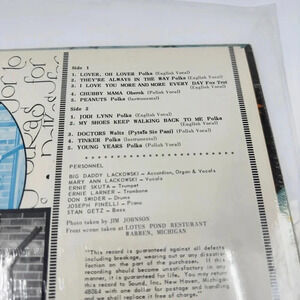 Side 1
1. LOVER, OH LOVER Polka (English Vocal)
2. THEY'RE ALWAYS IN THE WAY Polka (English Vocal)
3. I LOVE YOU MORE AND MORE EVERY DAY Fox Trot (English Vocal)
4. CHUBBY MAMA Oberek (Polish Vocal)
5. PEANUTS Polka (Instrumental)
Side 2
1. JODI LYNN Polka (English Vocal)
2. MY SHOES KEEP WALKING BACK TO ME Polka (English Vocal)
3. DOCTORS Waltz (Pytała Sie Pani) (Polish Vocal)
4. TINKER Polka (Instrumental)
5. YOUNG YEARS Polka (Polish Vocal)
PERSONNEL
BIG DADDY LACKOWSKI — Accordion, Organ & Vocals
MARY ANN LACKOWSKI — Vocals
ERNIE SKUTA — Trumpet
ERNIE LARNER — Trombone
DON SNIDER — Drums
JOSEPH PINELLI — Piano
STAN GETZ — Bass
Photo taken by JIM JOHNSON
Front scene taken at LOTUS POND RESTURANT
WARREN, MICHIGAN
"This record is guaranteed against all defects
including breakage, wearing out or any dissatisfaction
on the part of the purchasers. If this
recording should become unsatisfactory in any
manner, it is guaranteed for life. You may return
this record to Sound, Inc., New Haven, Michigan
48048 with one dollar to cover handling and postage
and we shall replace it free of charge."